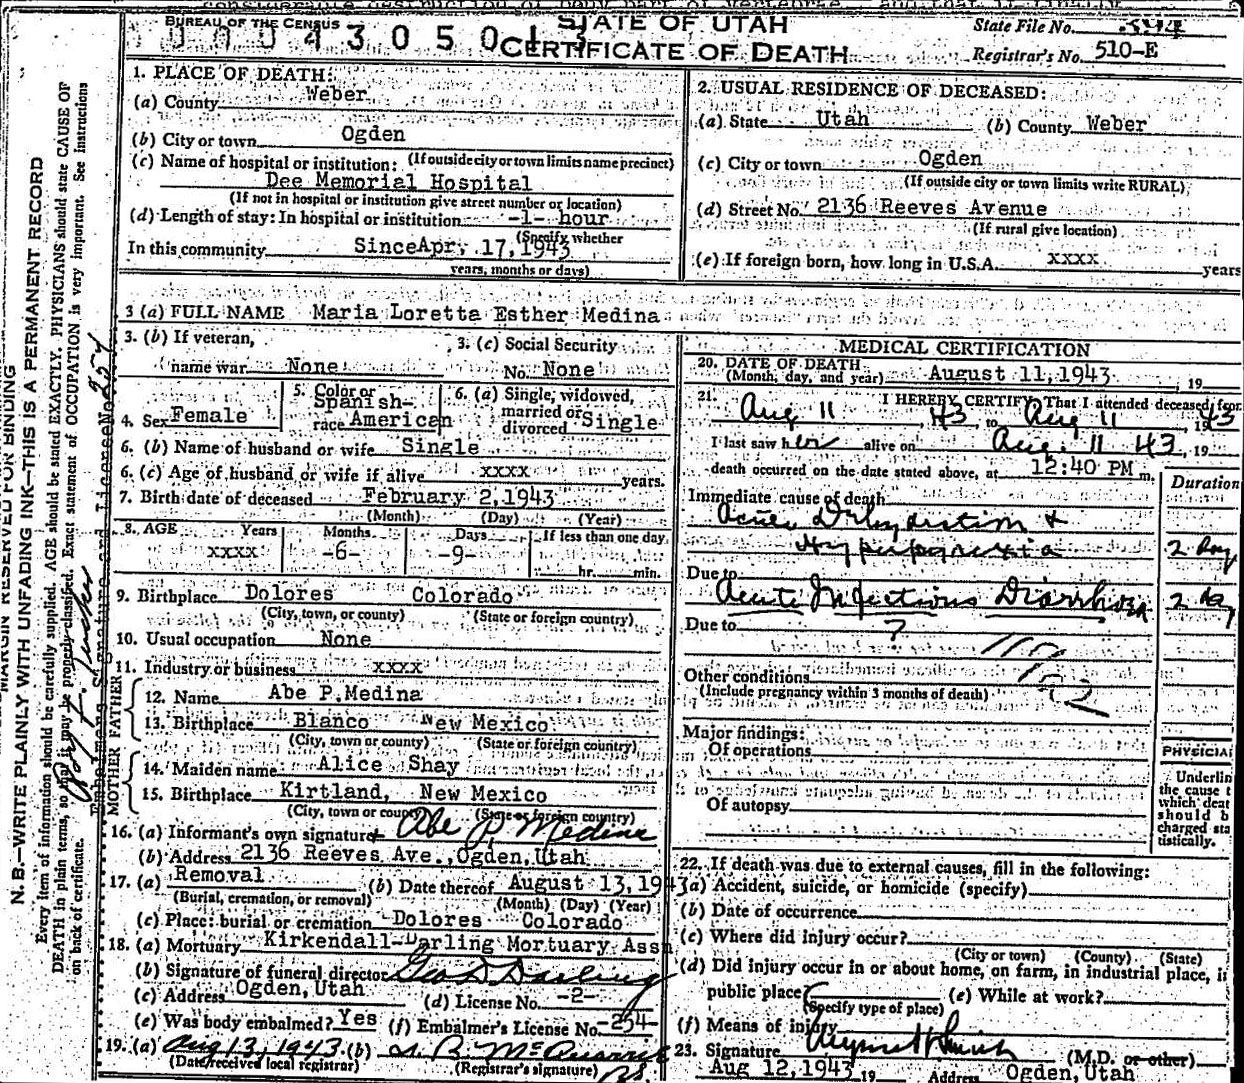 BUREAU OF THE CENSUS
STATE OF UTAH
CERTIFICATE OF DEATH
State File No.
Registrar's No. 510-E
MARGIN RESERVED FOR BINDING
N. B.—WRITE PLAINLY WITH UNFADING INK—THIS IS A PERMANENT RECORD
Every item of information should be carefully supplied. AGE should be stated EXACTLY. PHYSICIANS should state CAUSE OF
DEATH in plain terms, so that it may be properly classified. Exact statement of OCCUPATION is very important. See instructions
on back of certificate.
1. PLACE OF DEATH:
(a) County Weber
(b) City or town Ogden
(c) Name of hospital or institution: (If outside city or town limits name precinct)
Dee Memorial Hospital
(If not in hospital or institution give street number or location)
(d) Length of stay: In hospital or institution -1- hour
(Specify whether
In this community Since Apr. 17, 1943
years, months or days)
2. USUAL RESIDENCE OF DECEASED:
(a) State Utah (b) County Weber
(c) City or town Ogden
(If outside city or town limits write RURAL)
(d) Street No. 2136 Reeves Avenue
(If rural give location)
(e) If foreign born, how long in U.S.A. xxxx years
3 (a) FULL NAME Maria Loretta Esther Medina
3. (b) If veteran,
name war None
3. (c) Social Security
No. None
4. Sex Female
5. Color or
race Spanish-
American
6. (a) Single, widowed,
married or
divorced Single
6. (b) Name of husband or wife Single
6. (c) Age of husband or wife if alive xxxx years.
7. Birth date of deceased February 2, 1943
(Month) (Day) (Year)
8. AGE Years Months Days If less than one day
xxxx -6- -9- hr. min.
9. Birthplace Dolores Colorado
(City, town, or county) (State or foreign country)
10. Usual occupation None
11. Industry or business xxxx
FATHER
12. Name Abe P. Medina
13. Birthplace Blanco New Mexico
(City, town or county) (State or foreign country)
MOTHER
14. Maiden name Alice Shay
15. Birthplace Kirtland, New Mexico
(City, town or county) (State or foreign country)
16. (a) Informant's own signature Abe P. Medina
(b) Address 2136 Reeves Ave., Ogden, Utah
17. (a) Removal (b) Date thereof August 13, 1943
(Burial, cremation, or removal) (Month) (Day) (Year)
(c) Place: burial or cremation Dolores Colorado
18. (a) Mortuary Kirkendall-Darling Mortuary Assn
(b) Signature of funeral director Geo D Darling
(c) Address Ogden, Utah (d) License No. -2-
(e) Was body embalmed? Yes (f) Embalmer's License No. -254-
19. (a) Aug 13, 1943 (b)
(Date received local registrar) (Registrar's signature)
MEDICAL CERTIFICATION
20. DATE OF DEATH
(Month, day, and year) August 11, 1943, 19
21. I HEREBY CERTIFY, That I attended deceased from
Aug 11, 43, to Aug 11, 1943
I last saw her alive on Aug. 11 43, 19
death occurred on the date stated above, at 12:40 PM m.
Duration
Immediate cause of death
Acute Dehydration &
Hyperpyrexia 2 Day
Due to
Acute Infectious Diarrhoea 2 day
Due to ?
119
Other conditions
(Include pregnancy within 3 months of death)
Major findings:
Of operations
Of autopsy
PHYSICIAN
Underlin
the cause t
which deat
should b
charged sta
tistically.
22. If death was due to external causes, fill in the following:
(a) Accident, suicide, or homicide (specify)
(b) Date of occurrence
(c) Where did injury occur?
(City or town) (County) (State)
(d) Did injury occur in or about home, on farm, in industrial place, in
public place? (e) While at work?
(Specify type of place)
(f) Means of injury
23. Signature (M.D. or other)
Aug 12, 1943, 19 Address Ogden, Utah